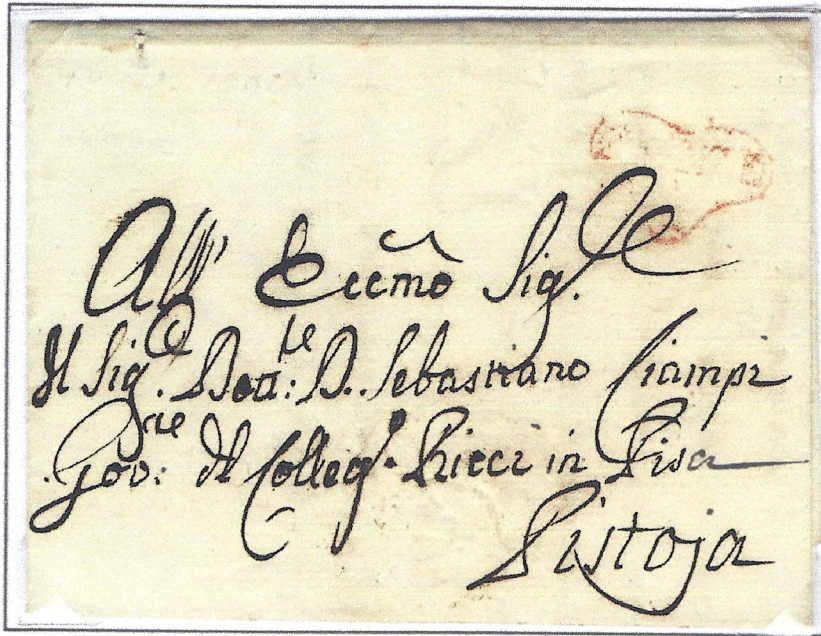 All' Eccmo Sig.re
Il Sig.re Dott:re D. Sebastiano Ciampi
Gov:re del Colleg.o Ricci in Pisa
Pistoja